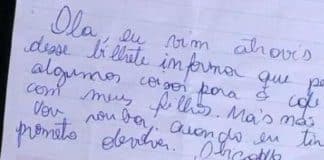 Ola, eu vim atravis
desse bilhete informar que pe
algumas coisas para
com meus filhos. Mas não
vou roubar, quando eu tin
prometo devolver. Obrigado